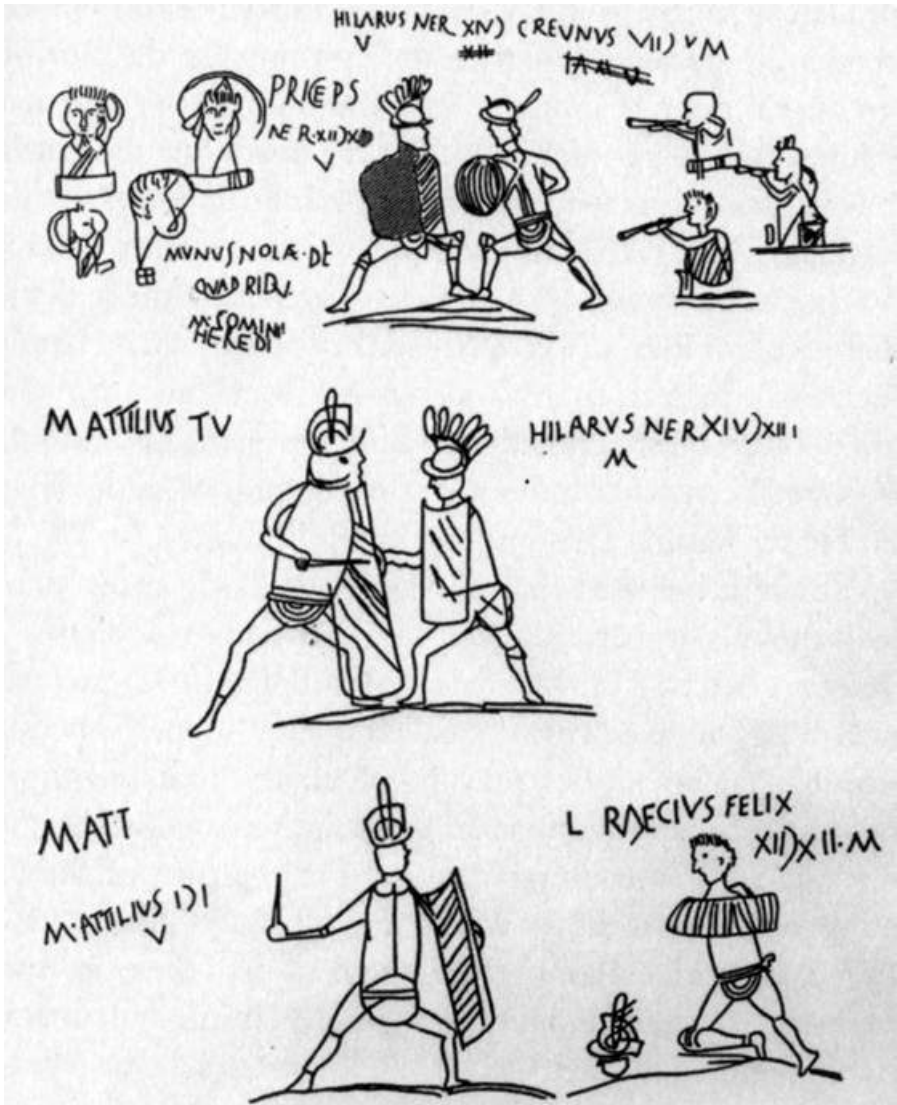 HILARUS NER XIV) CREUNUS VII) V M
V
PRICEPS
NER·XII)XII
V
MVNUSNOLÆ·DE
QVADRIDV
M·SOMINII
HEREDI
M ATTILIUS TV
HILARVS NERXIV)XIII
M
MATT
M·ATTILIUS I)I
V
L RAECIVS FELIX
XII)XII·M